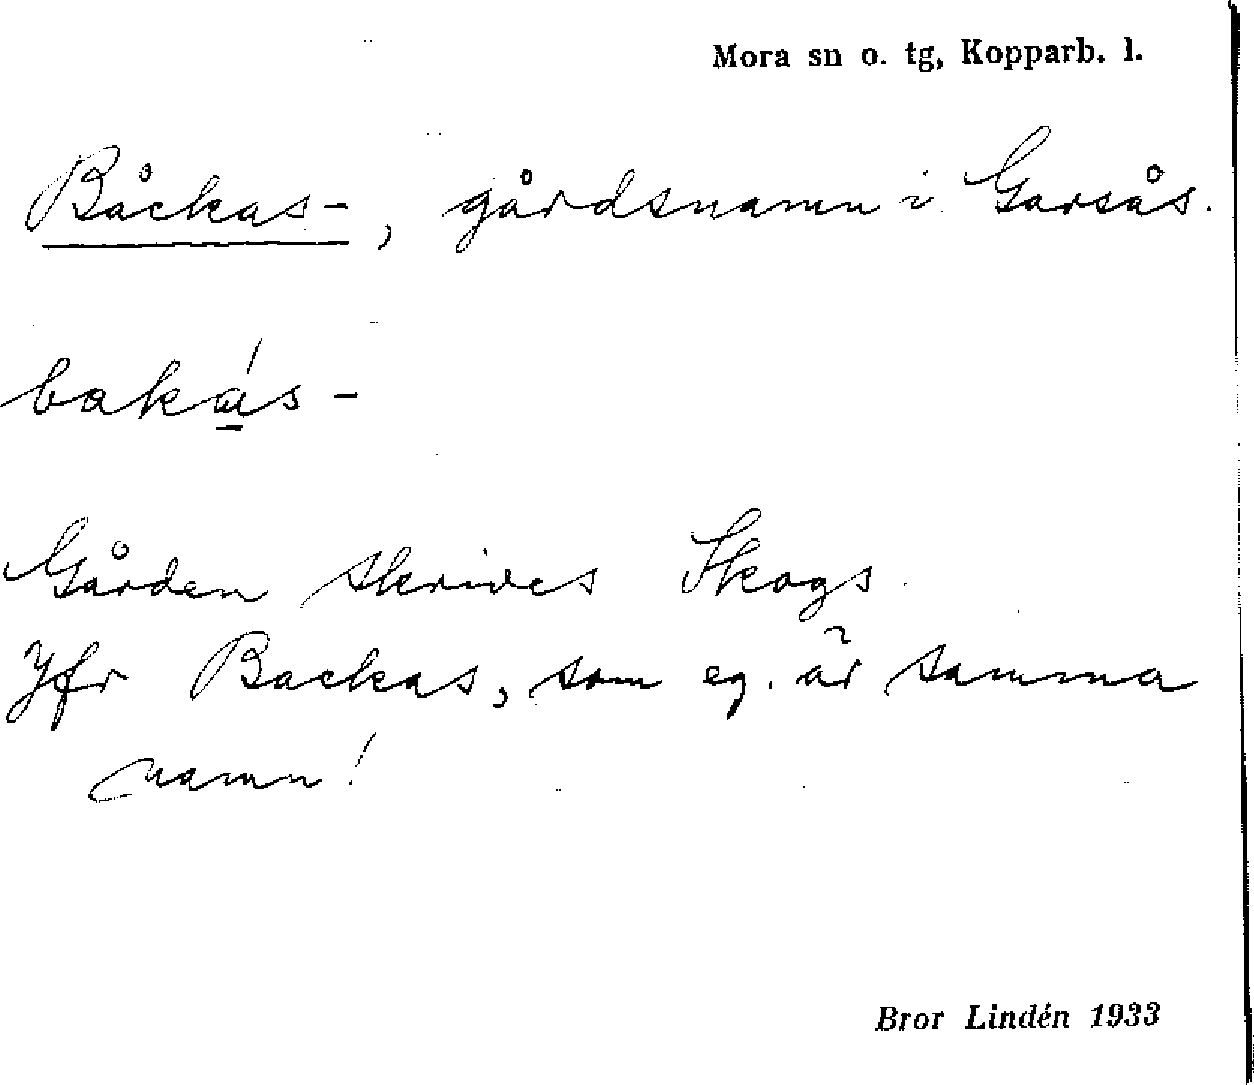 Mora sn o. tg, Kopparb. l.
Båckas-, gårdsnamn i Garsås.
bakás-
Gården skrives Skogs.
Jfr Backas, som eg. är samma
namn!
Bror Lindén 1933